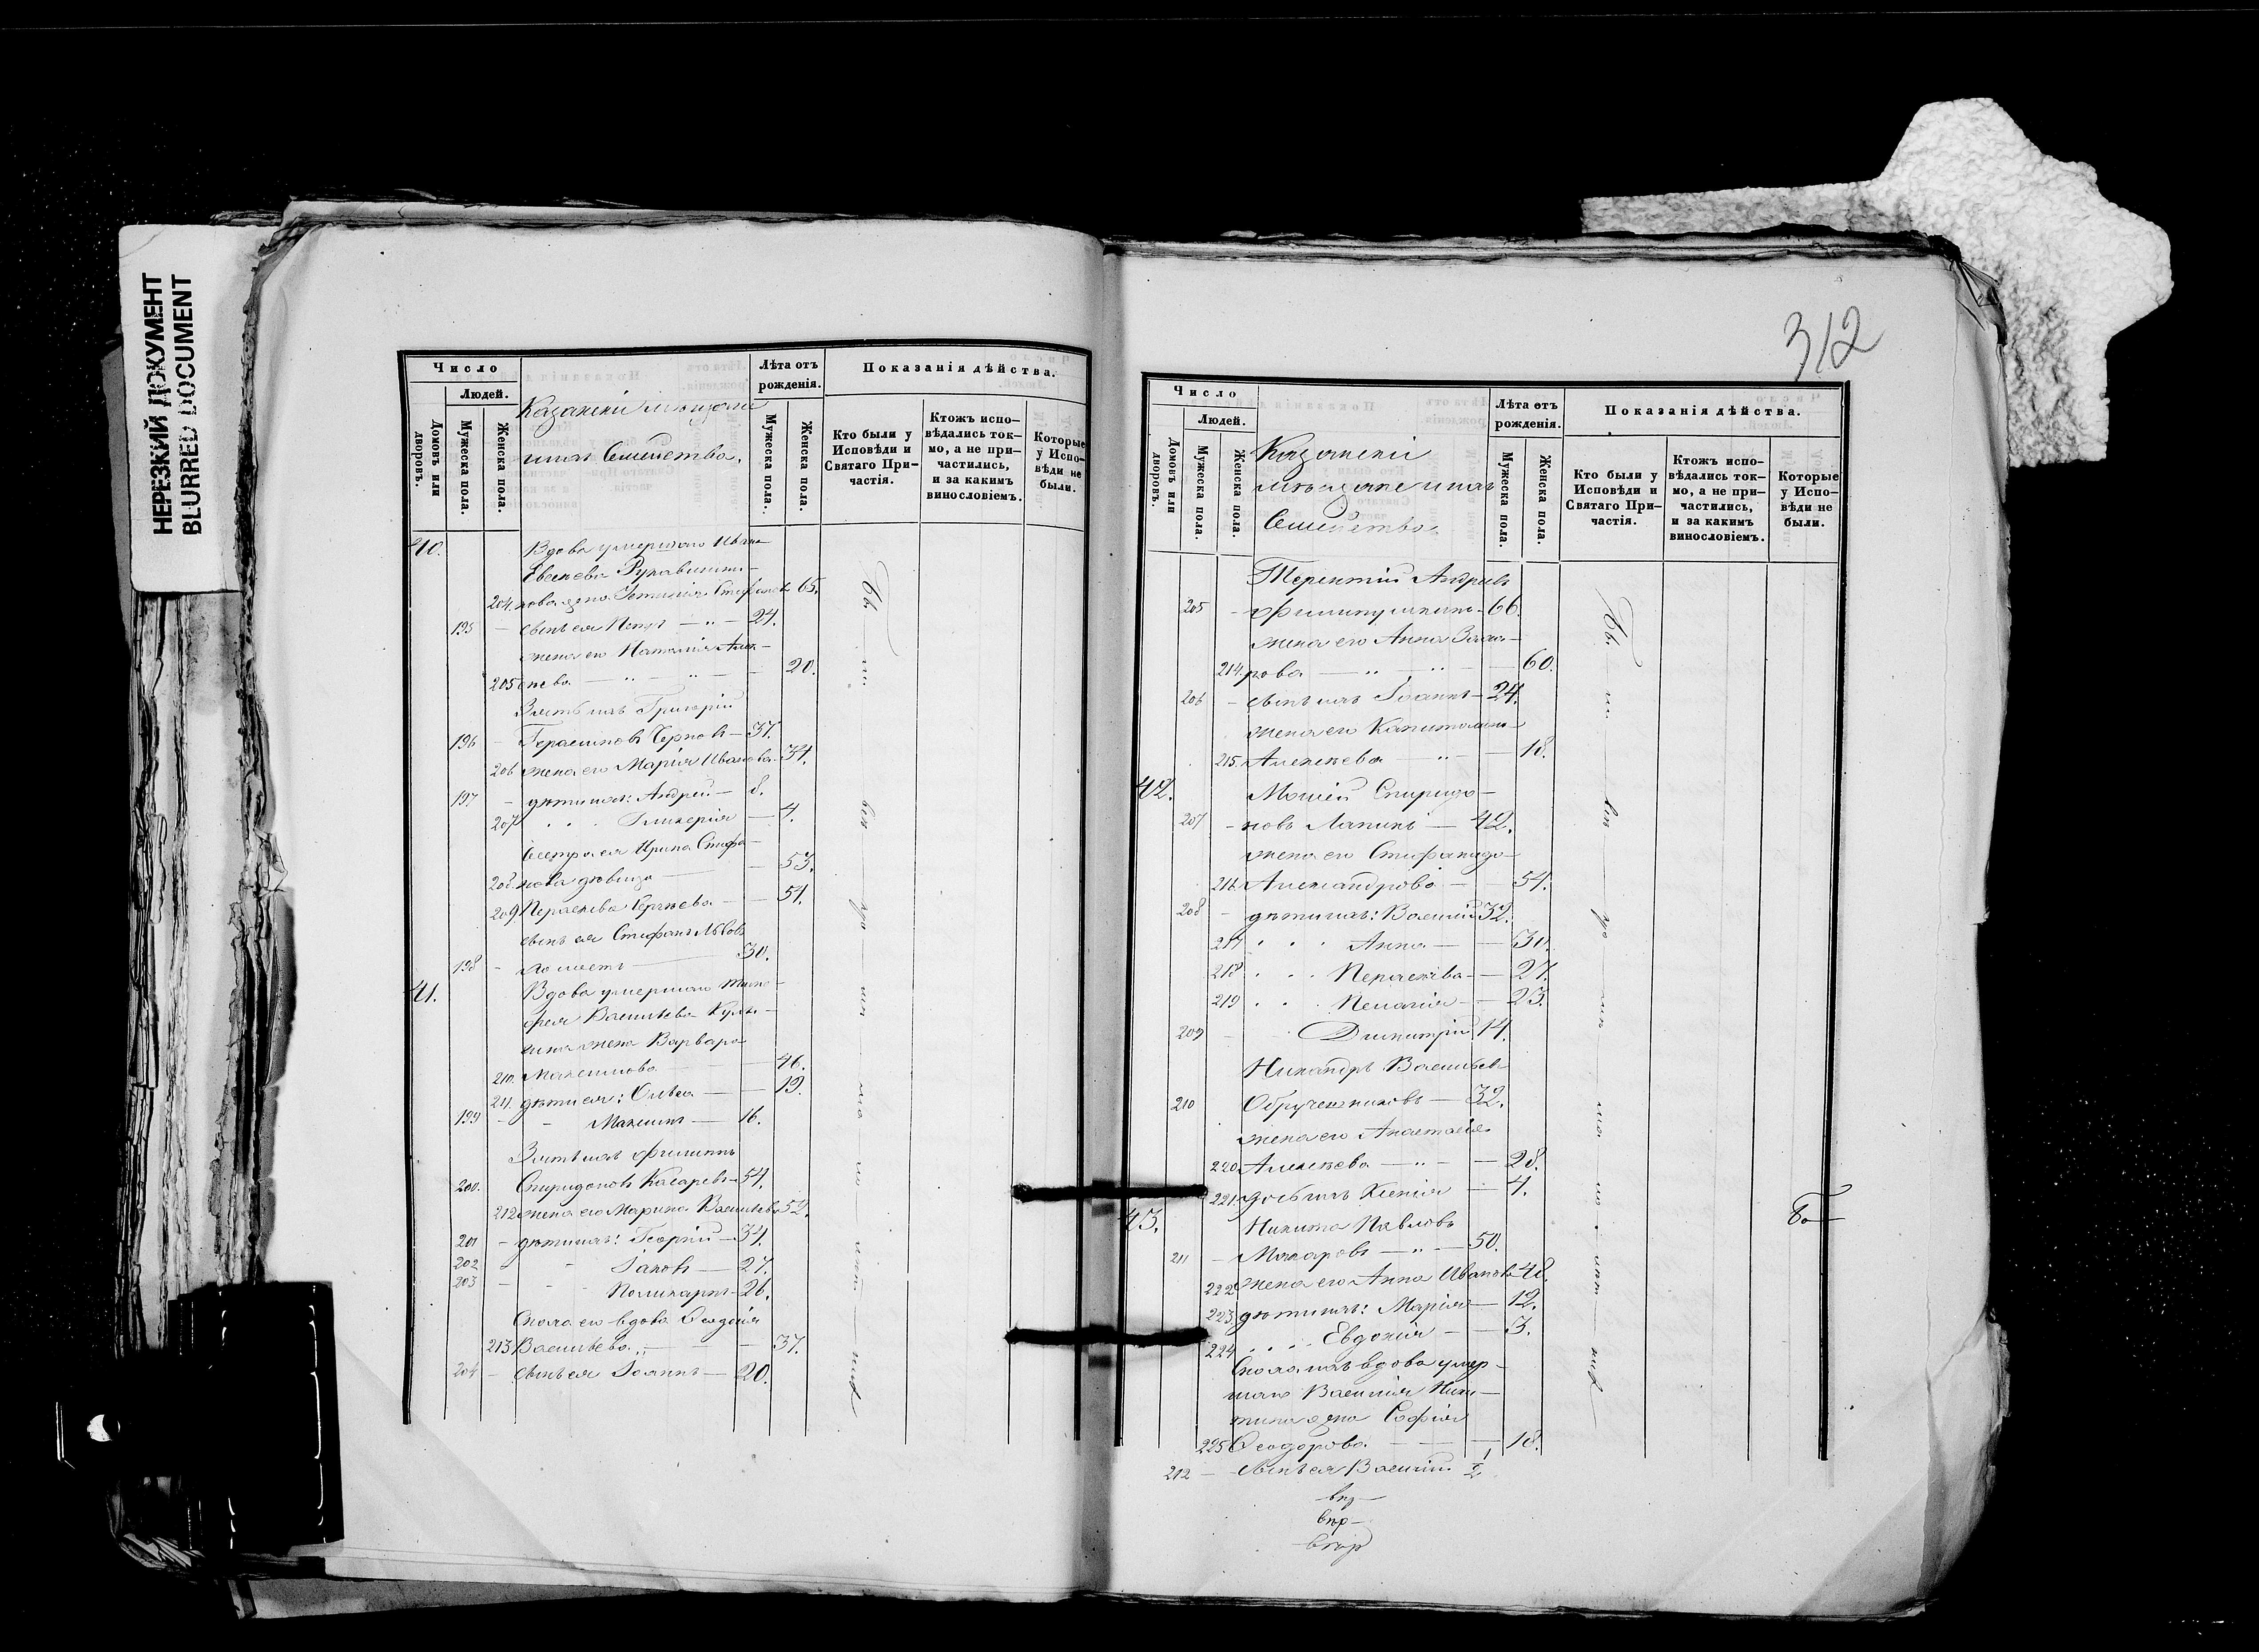 НЕРЕЗКИЙ ДОКУМЕНТ
BLURRED DOCUMENT
Число
Людей.
Домовъ или дворовъ.
Мужеска пола.
Женска пола.
Казанскіи мѣщане
и ихъ Семейства.
Лѣта отъ рожденія.
Мужеска пола.
Женска пола.
Показанія дѣйства.
Кто были у Исповѣди и Святаго Причастія.
Ктожъ исповѣдались токмо, а не причастились, и за какимъ винословіемъ.
Которые у Исповѣди не были.
40. Вдова умершаго Ивана
Евсеева Рукавишни-
204. кова жена Устинія Стефанова 65.
195 - сынъ ея Петръ — 24.
жена его Наталія Алек-
205 сеева — 20.
Зять ихъ Григорій
196 - Герасимовъ — 37.
206 жена его Марія Иванова 34.
197 - дѣти ихъ: Андрей — 8.
207 Гликерія — 4.
Сестра ея Ирина Стефа-
208. нова дѣвица — 53.
209 Параскева Сергѣева — 51.
сынъ ея Стефанъ Львовъ
198 - 30.
41. Вдова умершаго Тимо-
фея Васильева
жена Варвара
210. Максимова — 46.
211. дѣти ея: Ольга — 19.
199 - Максимъ — 16.
Зять ихъ Филиппъ
200. Спиридоновъ Касаревъ — 54.
212 жена его Марина Васильева 52.
201 - дѣти ихъ: Георгій — 34.
202 - Іаковъ — 27.
203 - Поликарпъ — 26.
Сноха его вдова Ѳеодосія
213 Васильева — 37.
204 - сынъ ея Іоаннъ — 20.
312
Число
Людей.
Домовъ или дворовъ.
Мужеска пола.
Женска пола.
Казанскіи
мѣщане и ихъ
Семейства.
Лѣта отъ рожденія.
Мужеска пола.
Женска пола.
Показанія дѣйства.
Кто были у Исповѣди и Святаго Причастія.
Ктожъ исповѣдались токмо, а не причастились, и за какимъ винословіемъ.
Которые у Исповѣди не были.
Терентій Андреевъ
205 - 66.
жена его Анна Заха-
214. рова — 60.
206 - сынъ ихъ Іоаннъ — 24.
жена его Капитолина
215. Алексѣева — 18.
42. Моисей Спиридо-
207 - новъ Лапинъ — 42.
жена его Стефанида
216. Александрова — 54.
208 - дѣти ихъ: Василій 32.
217 Анна — 30.
218 Параскева — 27.
219 Пелагія — 23.
209 - Димитрій 14.
Никандръ Васильевъ
210 Обручниковъ — 32.
жена его Анастасія
220 Алексѣева — 28.
221. дочь ихъ Ксенія — 4.
43. Никита Павловъ
211 - Макаровъ — 50.
222 жена его Анна Иванова 48.
223. дѣти ихъ: Марія — 12.
224 Евдокія — 3.
Сноха ихъ вдова умер-
шаго Василія Ники-
тина жена Софія
225 Ѳеодорова — 18.
212 - сынъ ея Василій ½